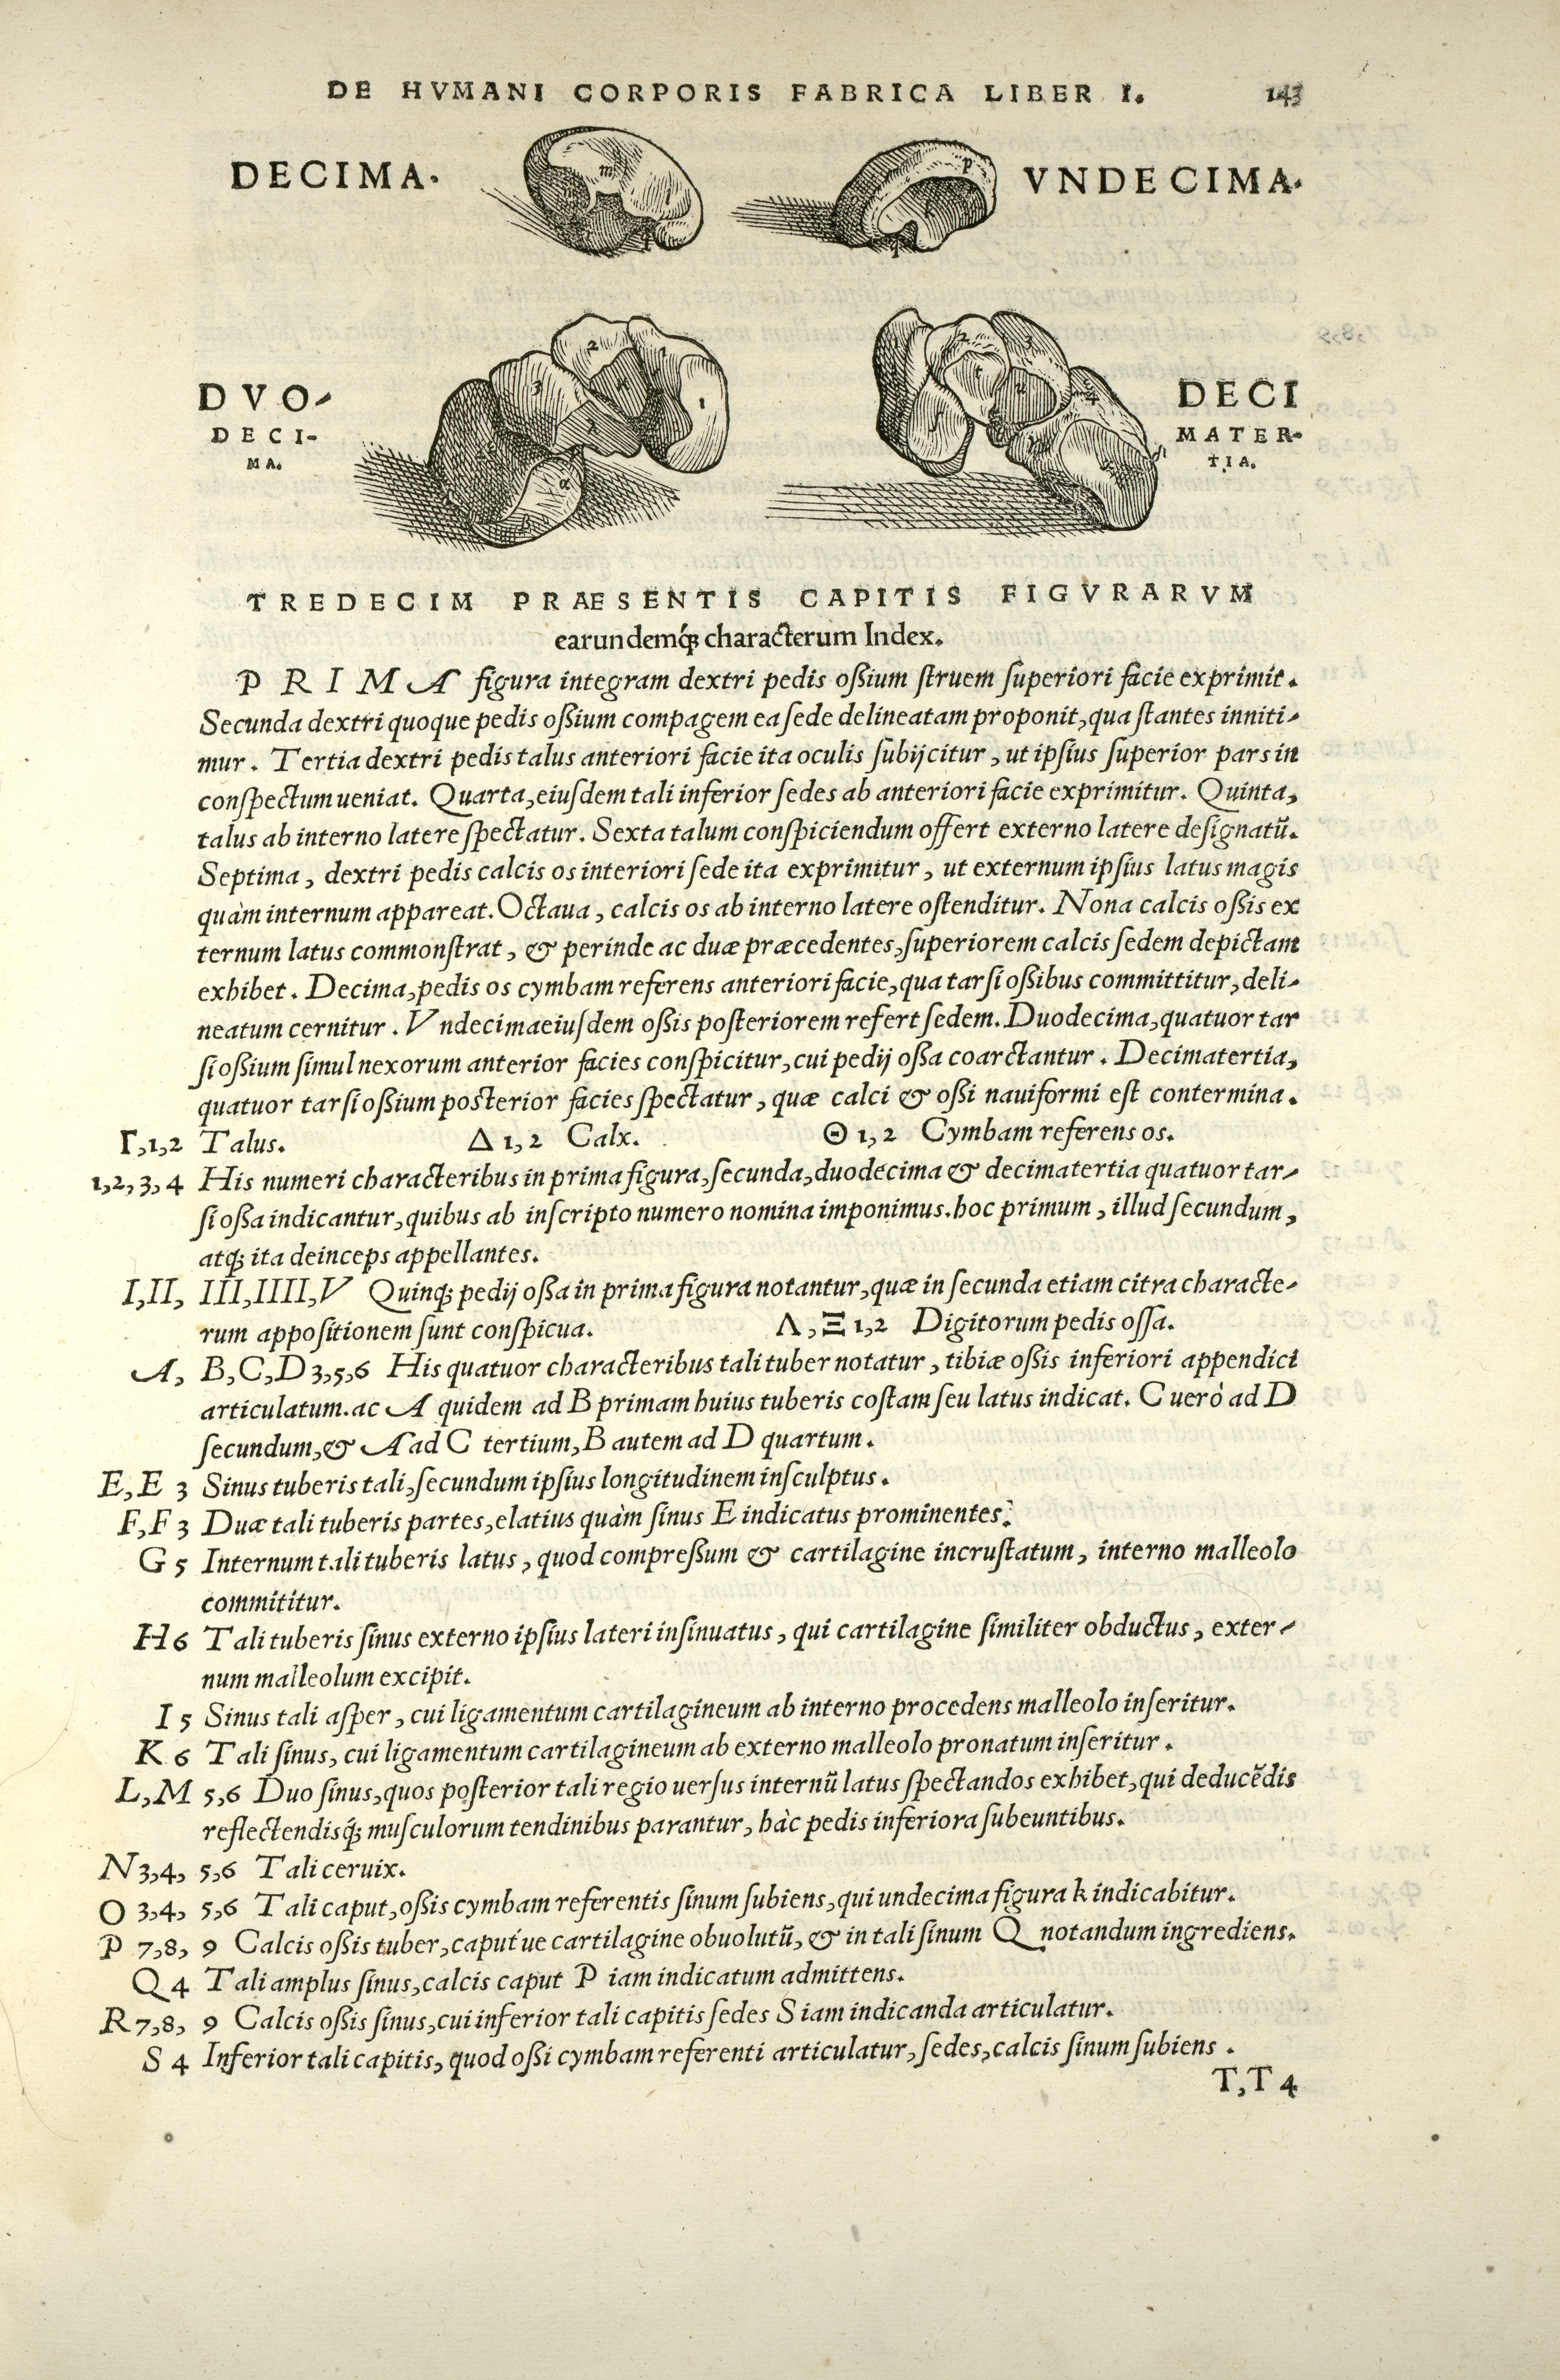 DE HVMANI CORPORIS FABRICA LIBER I. 143
DECIMA.
VNDECIMA.
DVO-
DECI-
MA.
DECI
MATER-
TIA.
TREDECIM PRAESENTIS CAPITIS FIGVRARVM
earundemq́; characterum Index.
PRIMA figura integram dextri pedis oſſium ſtruem ſuperiori facie exprimit.
Secunda dextri quoque pedis oſſium compagem ea ſede delineatam proponit, qua ſtantes inniti-
mur. Tertia dextri pedis talus anteriori facie ita oculis ſubijcitur, ut ipſius ſuperior pars in
conſpectum ueniat. Quarta, eiuſdem tali inferior ſedes ab anteriori facie exprimitur. Quinta,
talus ab interno latere ſpectatur. Sexta talum conſpiciendum offert externo latere deſignatū.
Septima, dextri pedis calcis os interiori ſede ita exprimitur, ut externum ipſius latus magis
quàm internum appareat. Octaua, calcis os ab interno latere oſtenditur. Nona calcis oſſis ex
ternum latus commonſtrat, & perinde ac duæ præcedentes, ſuperiorem calcis ſedem depictam
exhibet. Decima, pedis os cymbam referens anteriori facie, qua tarſi oſſibus committitur, deli-
neatum cernitur. Vndecima eiuſdem oſſis poſteriorem refert ſedem. Duodecima, quatuor tar
ſi oſſium ſimul nexorum anterior facies conſpicitur, cui pedij oſſa coarctantur. Decimatertia,
quatuor tarſi oſſium poſterior facies ſpectatur, quæ calci & oſſi nauiformi eſt contermina.
Γ,1,2 Talus. Δ 1,2 Calx. Θ 1,2 Cymbam referens os.
1,2,3,4 His numeri characteribus in prima figura, ſecunda, duodecima & decimatertia quatuor tar-
ſi oſſa indicantur, quibus ab inſcripto numero nomina imponimus. hoc primum, illud ſecundum,
atq; ita deinceps appellantes.
I,II, III,IIII,V Quinq; pedij oſſa in prima figura notantur, quæ in ſecunda etiam citra characte-
rum appoſitionem ſunt conſpicua. Λ,Ξ 1,2 Digitorum pedis oſſa.
A, B,C,D 3,5,6 His quatuor characteribus tali tuber notatur, tibiæ oſſis inferiori appendici
articulatum. ac A quidem ad B primam huius tuberis coſtam ſeu latus indicat. C uerò ad D
ſecundum, & A ad C tertium, B autem ad D quartum.
E,E 3 Sinus tuberis tali, ſecundum ipſius longitudinem inſculptus.
F,F 3 Duæ tali tuberis partes, elatius quàm ſinus E indicatus prominentes.
G 5 Internum tali tuberis latus, quod compreſſum & cartilagine incruſtatum, interno malleolo
commititur.
H 6 Tali tuberis ſinus externo ipſius lateri inſinuatus, qui cartilagine ſimiliter obductus, exter-
num malleolum excipit.
I 5 Sinus tali aſper, cui ligamentum cartilagineum ab interno procedens malleolo inſeritur.
K 6 Tali ſinus, cui ligamentum cartilagineum ab externo malleolo pronatum inſeritur.
L,M 5,6 Duo ſinus, quos poſterior tali regio uerſus internū latus ſpectandos exhibet, qui deducēdis
reflectendisq́; muſculorum tendinibus parantur, hàc pedis inferiora ſubeuntibus.
N 3,4, 5,6 Tali ceruix.
O 3,4, 5,6 Tali caput, oſſis cymbam referentis ſinum ſubiens, qui undecima figura k indicabitur.
P 7,8, 9 Calcis oſſis tuber, caputúe cartilagine obuolutū, & in tali ſinum Q notandum ingrediens.
Q 4 Tali amplus ſinus, calcis caput P iam indicatum admittens.
R 7,8, 9 Calcis oſſis ſinus, cui inferior tali capitis ſedes S iam indicanda articulatur.
S 4 Inferior tali capitis, quod oſſi cymbam referenti articulatur, ſedes, calcis ſinum ſubiens.
T,T 4